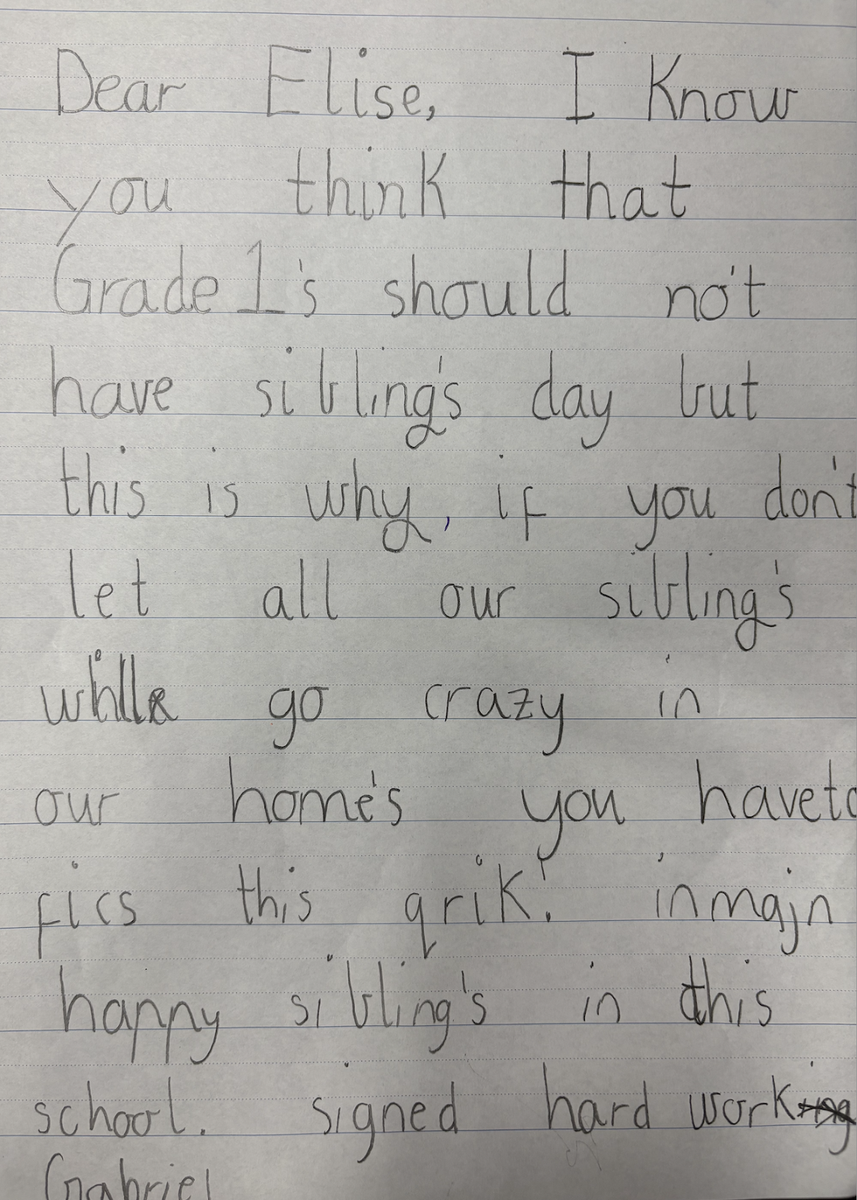 Dear Elise, I Know
you think that
Grade 1's should no't
have sibling's day but
this is why, if you don't
let all our sibling's
go crazy in
our home's you haveto
fics this qrik! inmajn
happy sibling's in this
school. signed hard work
Gabriel